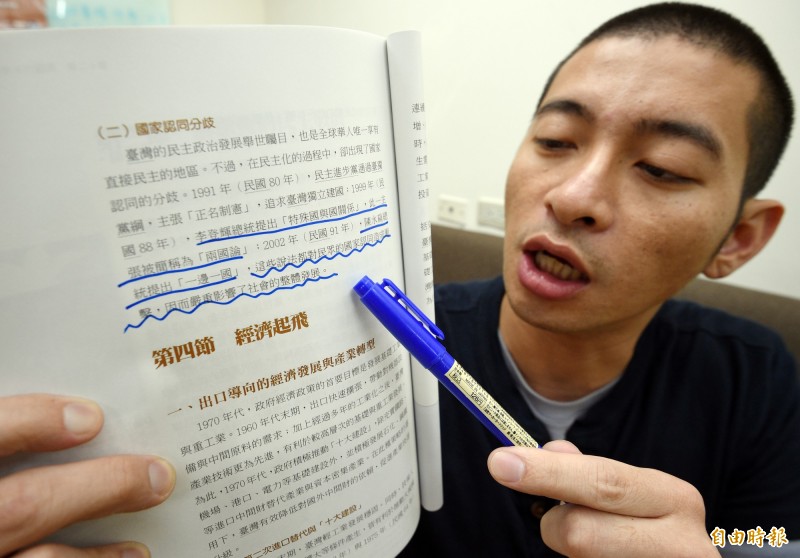 （二）國家認同分歧
臺灣的民主政治發展舉世矚目，也是全球華人唯一享有
直接民主的地區。不過，在民主化的過程中，卻出現了國家
認同的分歧。1991年（民國80年），民主進步黨通過臺獨
黨綱，主張「正名制憲」，追求臺灣獨立建國；1999年（民
國88年），李登輝總統提出「特殊國與國關係」，此一主
張被簡稱為「兩國論」；2002年（民國91年），陳水扁總
統提出「一邊一國」，這些說法都對民眾的國家認同造成衝
擊，因而嚴重影響了社會的整體發展。
第四節 經濟起飛
一、出口導向的經濟發展與產業轉型
1970年代，政府經濟政策的首要目標是發展基礎工
與重工業。1960年代末期，出口快速擴張，帶動對機器設
備與中間原料的需求；加上經過多年的工業化之後，臺灣
產業技術更為先進，有利於較高層次的基礎與重工業發展
為此，1970年代，政府積極推動「十大建設」，除交通
機場、港口、電力等基礎建設外，並積極發展
等進口中間財替代產業與資本密集產業。在此
用下，臺灣有效降低對國外中間財的依賴，
二次進口替代與「十大建設」
末期，臺灣輕工業發展
自由時報